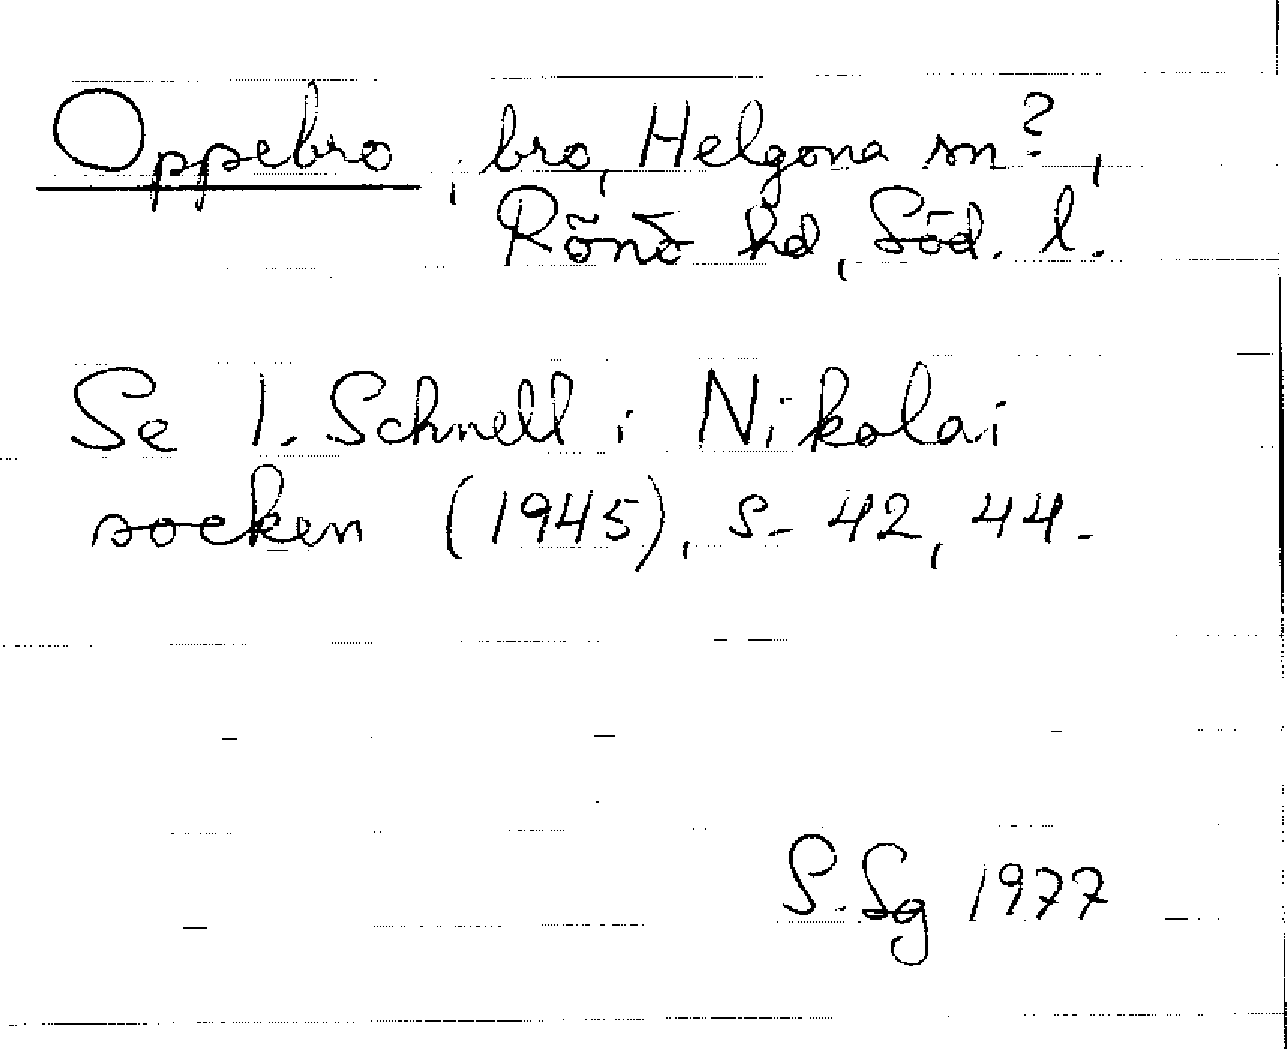 Oppebro, bro, Helgona sn?,
Rönö hd, Söd. l.
Se I. Schnell i Nikolai
socken (1945), s. 42, 44.
S. Sg 1977